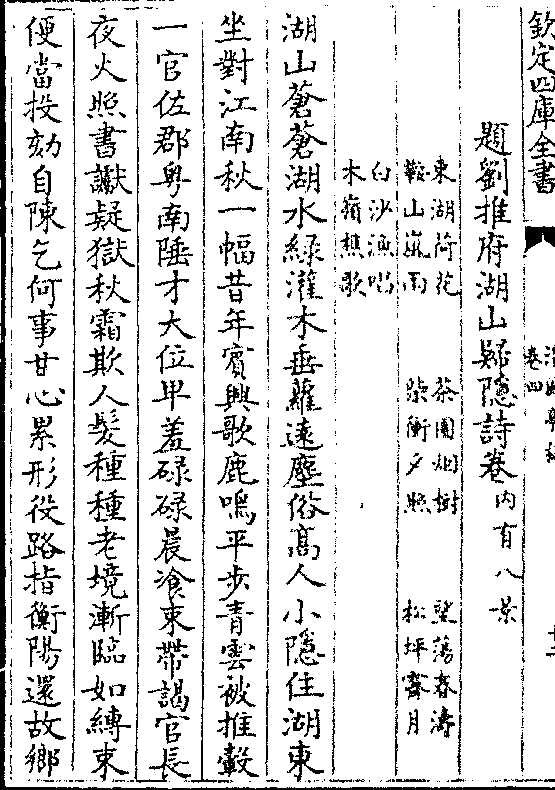 欽定四庫全書
卷四
題劉推府湖山疑隱詩卷内有八景
東湖荷花 茶園烟樹 蕩春濤
鞍山嵐雨 衡夕照 松坪霽月
白沙漁唱
木嶺樵歌
湖山蒼蒼湖水綠灌木垂蘿遠塵俗髙人小隱住湖東
坐對江南秋一幅昔年賓興歌鹿鳴平步青雲被推轂
一官佐郡粤南陲才大位卑羞碌碌晨飡束帶謁官長
夜火照書讞疑獄秋霜欺人髮種種老境漸臨如縛束
便當投劾自陳乞何事甘心累形役路指衡陽還故鄉